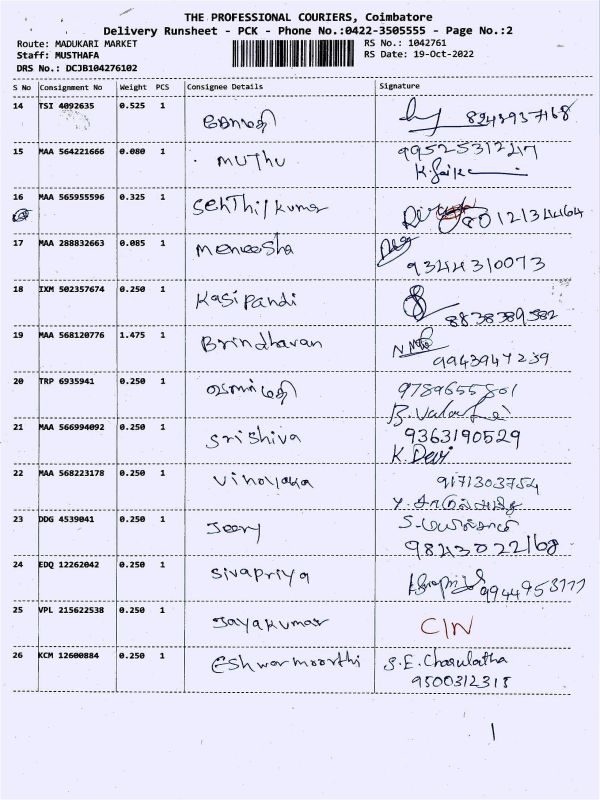 THE PROFESSIONAL COURIERS, Coimbatore
Delivery Runsheet - PCK - Phone No.:0422-3505555 - Page No.:2
Route: MADUKARI MARKET RS No.: 1042761
Staff: MUSTHAFA RS Date: 19-Oct-2022
DRS No.: DCJB104276102
S No Consignment No Weight PCS Consignee Details Signature
14 TSI 4092635 0.525 1 கோமதி
15 MAA 564221666 0.080 1 Muthu 9952531247
16 MAA 565955596 0.325 1 Senthil kumar 8012134464
17 MAA 288832663 0.085 1 Moneesha
9344310073
18 IXM 502357674 0.250 1 Kasi pandi
8838389582
19 MAA 568120776 1.475 1 Brindhavan
9943947239
20 TRP 6935941 0.250 1 வளர்மதி 9789655801
21 MAA 566994092 0.250 1 Srishiva 9363190529
K. Devi
22 MAA 568223178 0.250 1 Vinayaka 9171303754
23 DDG 4539041 0.250 1 Jeery
9843022168
24 EDQ 12262042 0.250 1 Sivapriya
25 VPL 215622538 0.250 1 Jayakumar C/N
26 KCM 12600884 0.250 1 Eshwarmoorthi S.E. Charulatha
9500312315